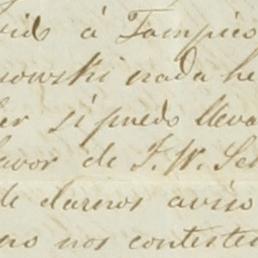 á Tampico
nowski nada he
er si puedo lleva
favor de F. W. Sc
de darnos aviso
nos contest